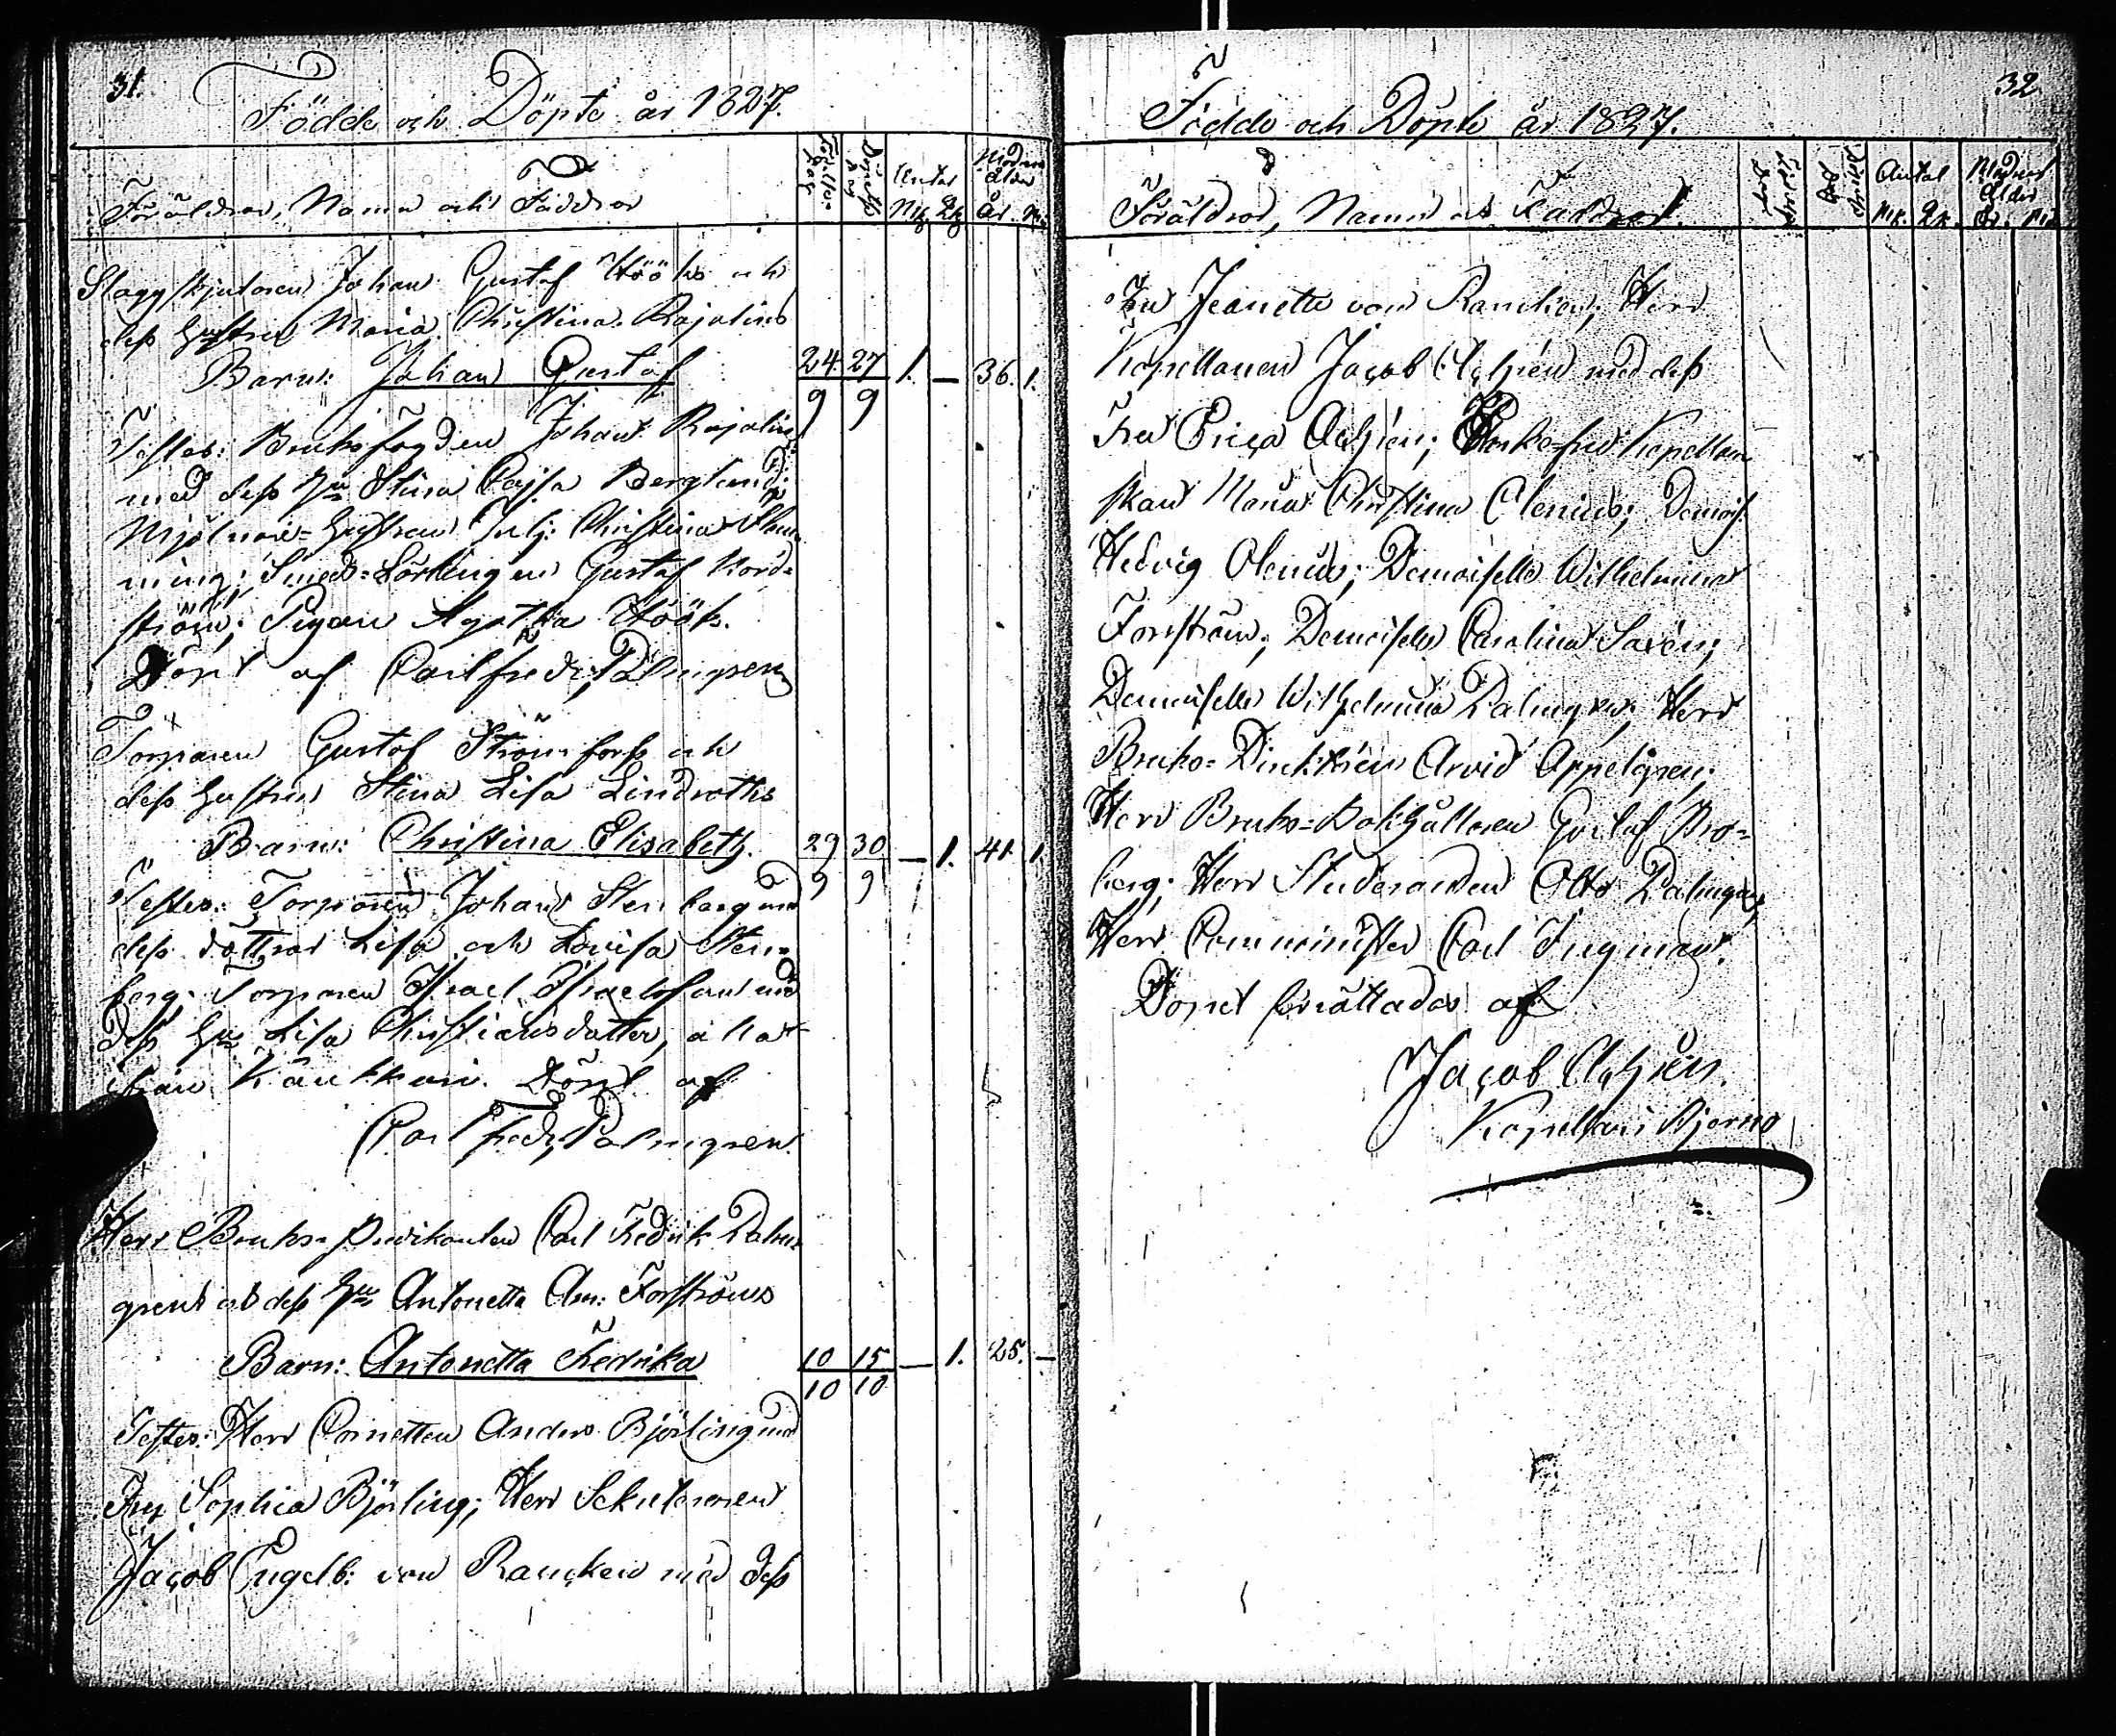 31.
Födde och Döpte år 1827.
Föräldrar, Namn och Faddrar
Födelse dag
Döpelse dag
Antal
Mk. Qk.
Modrens ålder
år. Mn.
Slaggskjutaren Johan Gustaf Hööks och
dess hustru Maria Christina Rajalins
Barn: Johan Gustaf 24/9 27/9 1. — 36. 1.
Testes: Bruksfogden Johan Rajalin
med dess hu Stina Cajsa Berglund;
Mjölnare-hustrun Julj: Christina
ning; Smeds-Lärlingen Gustaf Nord-
ström; Pigan Agatha Höök.
Döpt af Carl Fredr. Palmgren
Torparen Gustaf Strömforss och
dess hustru Stina Lisa Lindroths
Barn: Christina Elisabeth. 29/9 30/9 — 1. 41. 1.
Testes: Torparen Johan Stenberg med
dess döttrar Lisa och Lovisa Sten-
berg; Torparen Israel Israelsson med
Dess hu Lisa Christiansdotter, alla
från Döpt af
Carl Fredr. Palmgren.
Herr Bruks-Predikanten Carl Fredrik Palm-
grens och dess hu Antonetta Am: Forströms
Barn: Antonetta Fredrika 10/10 15/10 — 1. 25. —
Testes: Herr Cornetten Anders Björling med
Fru Sophia Björling; Herr Sekreteraren
Jacob Engelb: von Rancken med dess
32
Födde och Döpte år 1827.
Föräldrar, Namn och Faddrar.
Födelse dag
Döpelse dag
Antal
Mk. Qk.
Modrens ålder
År. Mn.
Fru Jeanette von Rancken; Herr
Kapellanen Jacob Achrén med dess
Fru Erica Achrén; Enke-fru Kapellan-
skan Maria Christina Olenius; Demois.
Hedvig Olenius; Demoiselle Wilhelmina
Forström; Demoiselle Carolina Savén;
Demoiselle Wilhelmina Palmgren; Herr
Bruks-Direktören Arvid Appelgren;
Herr Bruks-Bokhållaren Gustaf Bro-
berg; Herr Studeranden Otto Palmgren;
Herr Comminister Carl Ingman.
Dopet förrättades af
Jacob Achrén.
Kapellan i Bjerno